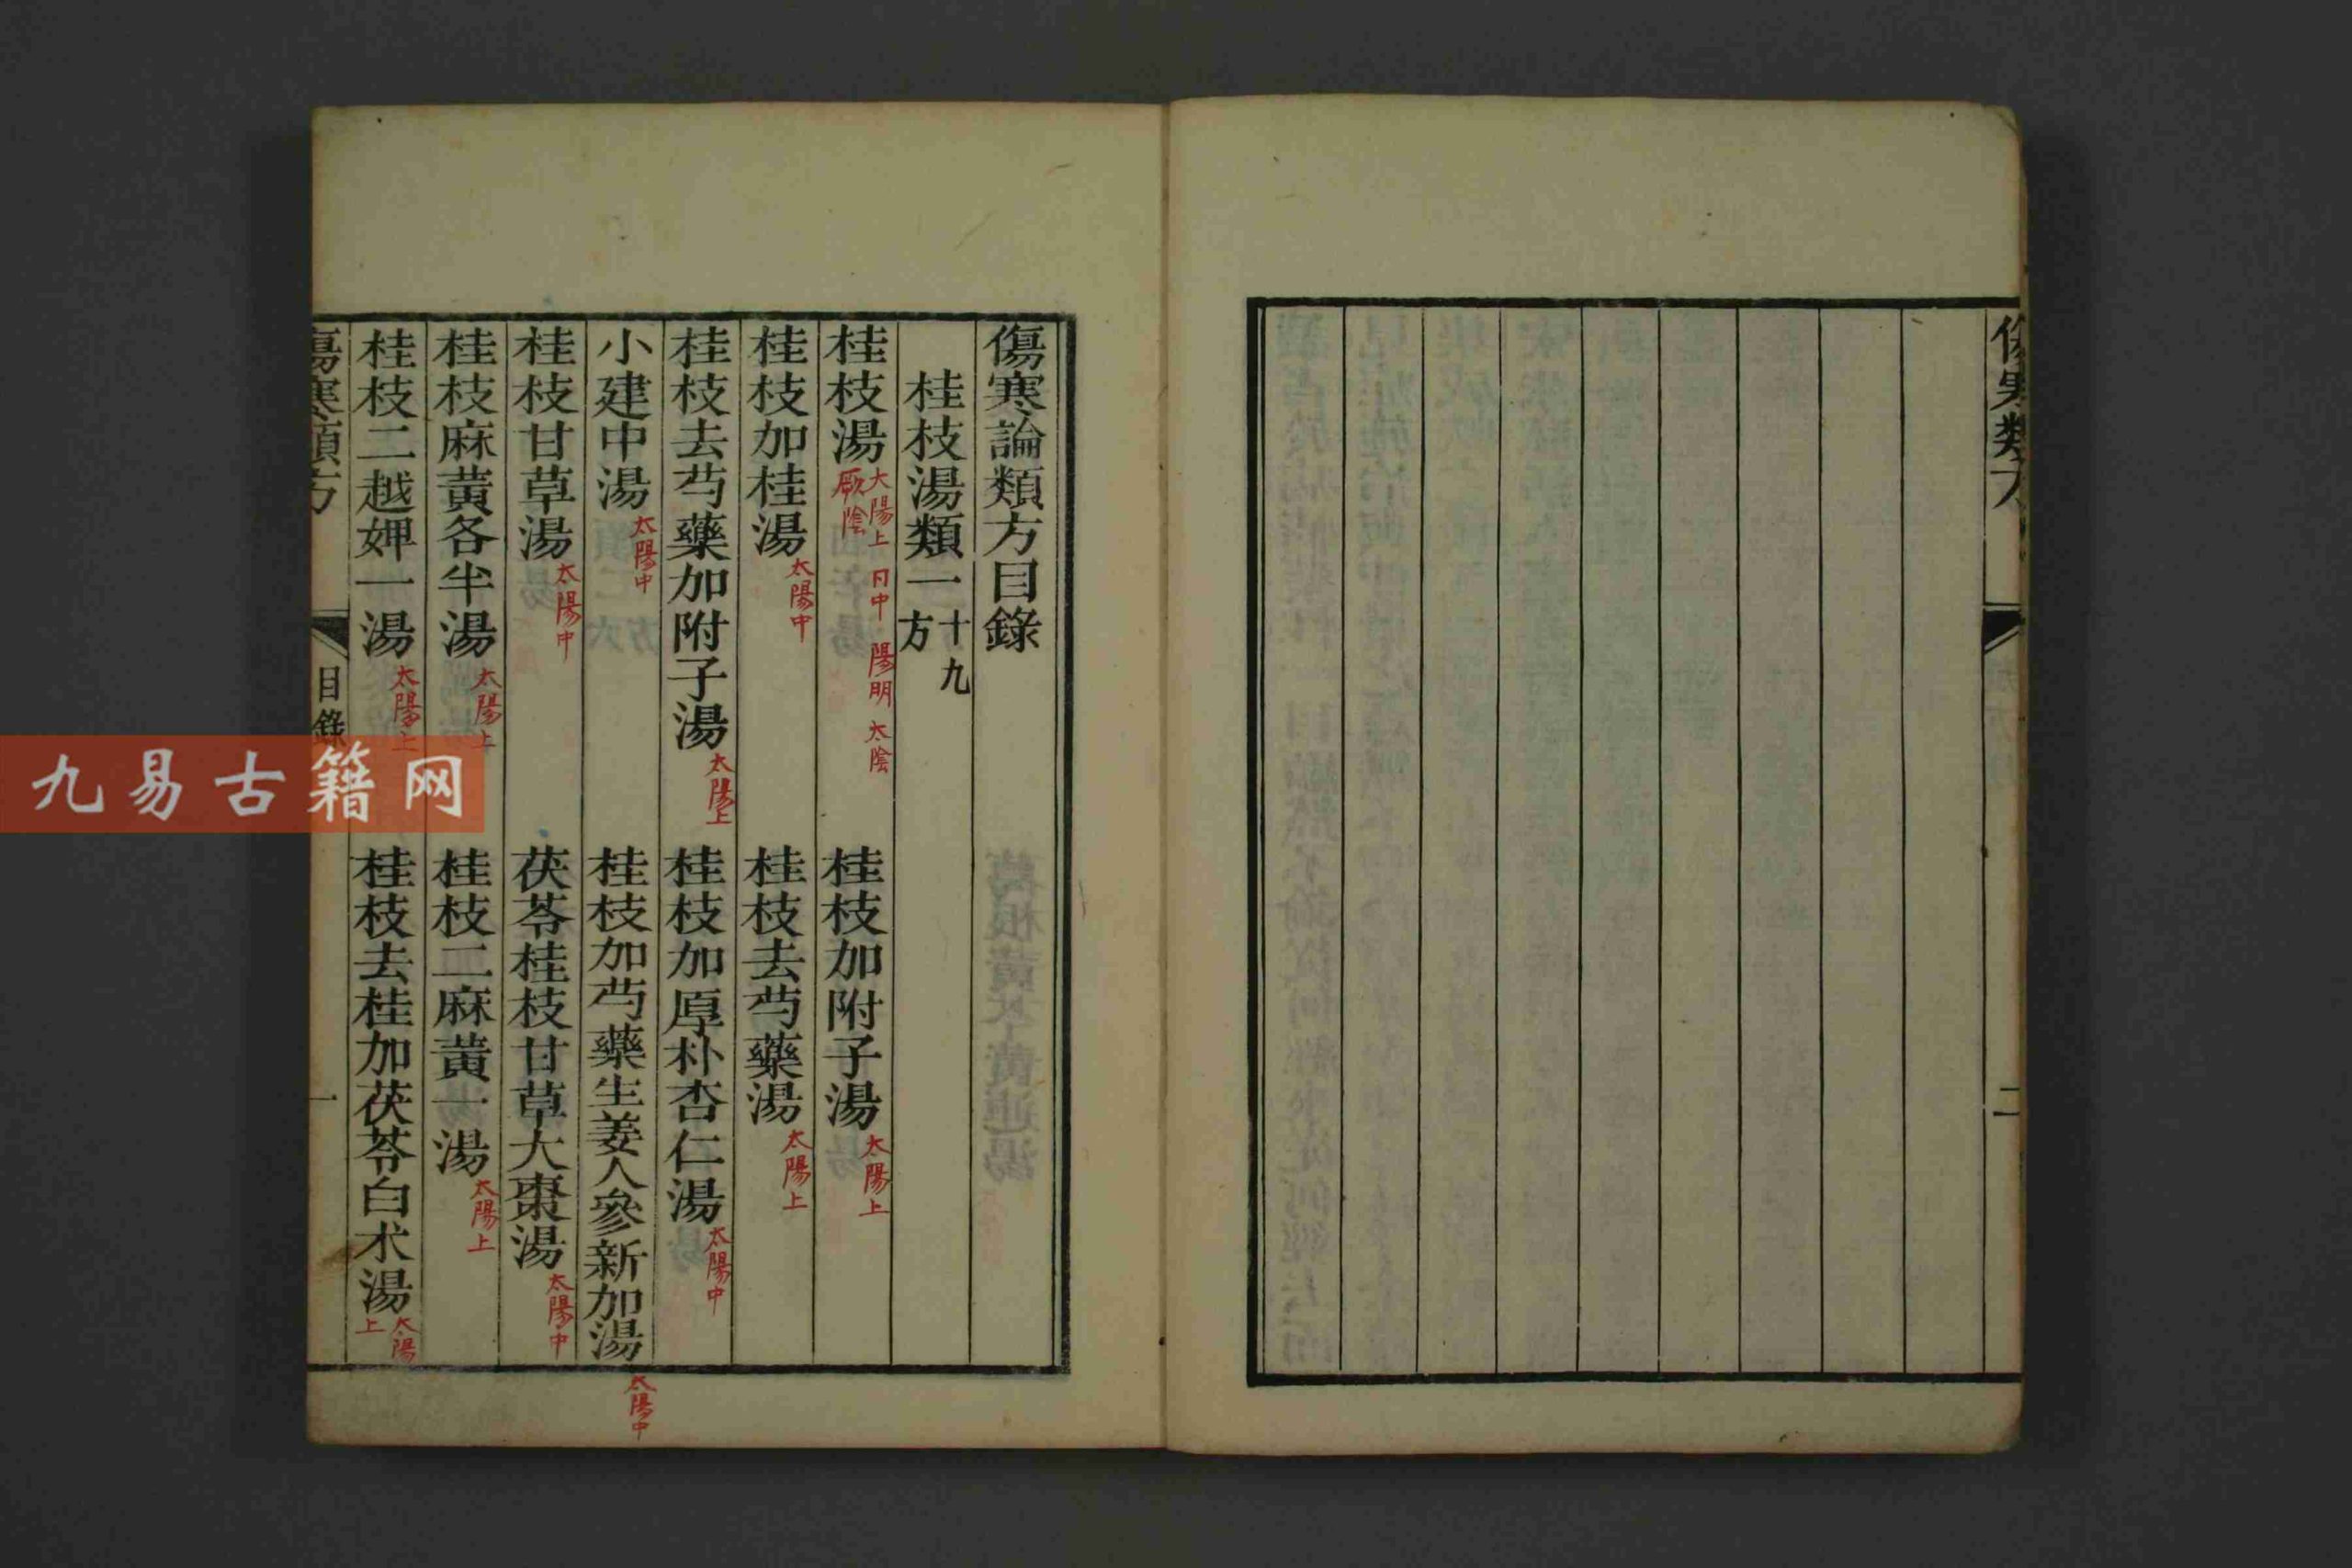 二
傷寒論類方目錄
桂枝湯類一十九方
桂枝湯 太陽上 又中 陽明 太陰 厥陰
桂枝加附子湯 太陽上
桂枝加桂湯 太陽中
桂枝去芍藥湯 太陽上
桂枝去芍藥加附子湯 太陽上
桂枝加厚朴杏仁湯 太陽中
小建中湯 太陽中
桂枝加芍藥生姜人參新加湯 太陽中
桂枝甘草湯 太陽中
茯苓桂枝甘草大棗湯 太陽中
桂枝麻黃各半湯 太陽上
桂枝二麻黃一湯 太陽上
桂枝二越婢一湯 太陽上
桂枝去桂加茯苓白朮湯 太陽上
傷寒類方
目錄
一
九易古籍网